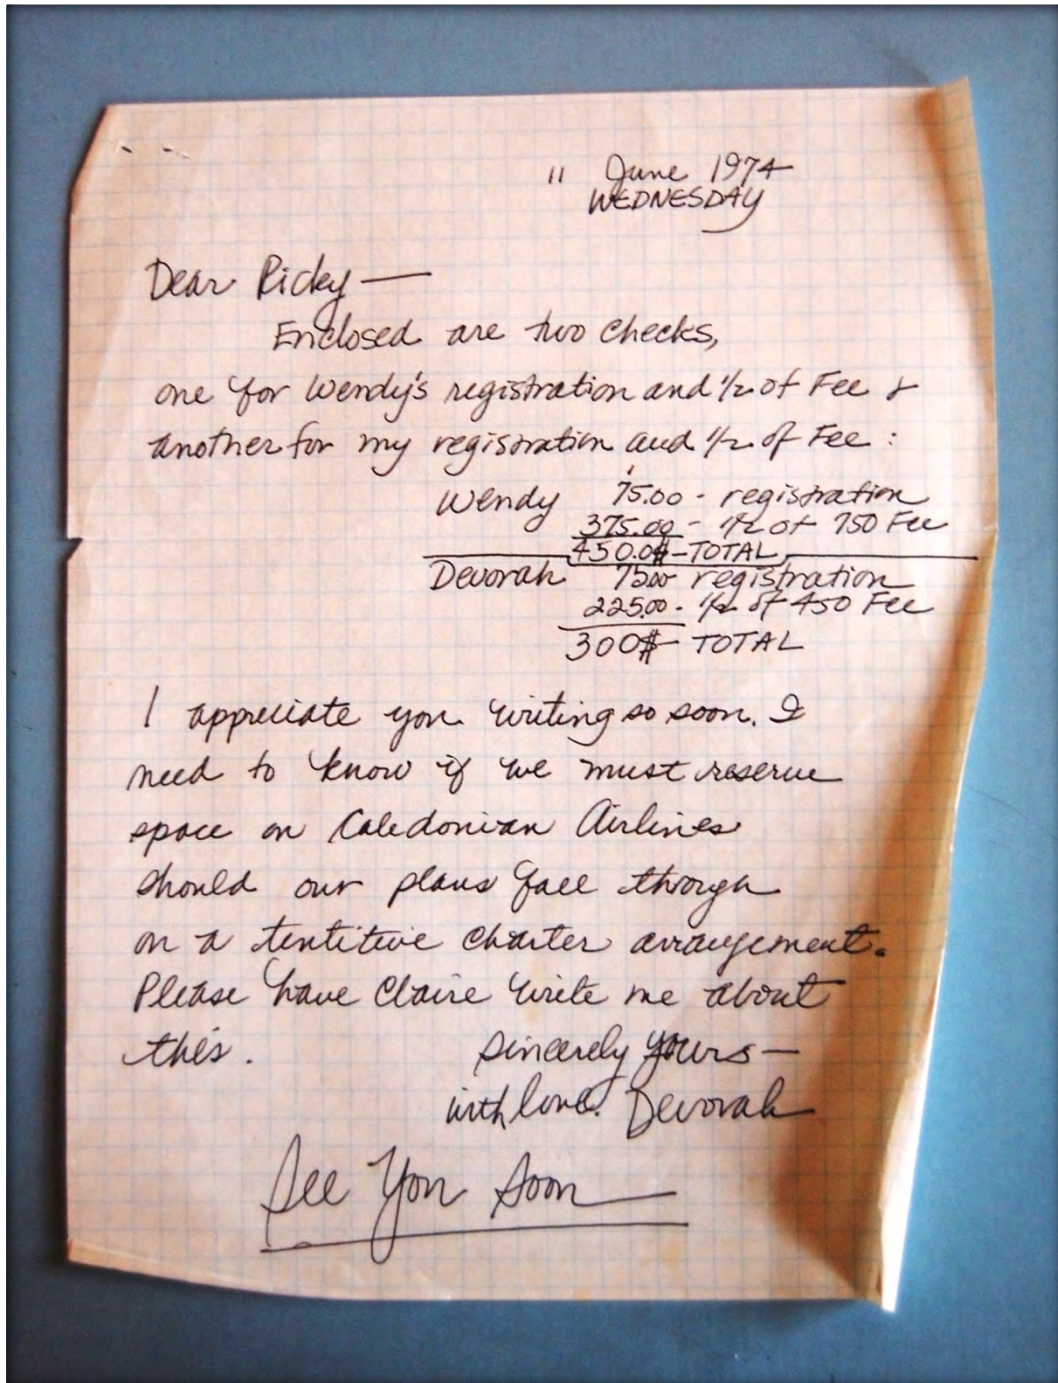 11 June 1974
WEDNESDAY
Dear Ricky —
Enclosed are two checks,
one for Wendy's registration and 1/2 of Fee &
another for my registration and 1/2 of Fee :
Wendy 75.00 - registration
375.00 - 1/2 of 750 Fee
450.0$ - TOTAL
Devorah 7500 registration
225.00 - 1/2 of 450 Fee
300$ - TOTAL
I appreciate you writing so soon. I
need to know if we must reserve
space on Caledonian Airlines
should our plans fall through
on a tentitive charter arrangement.
Please have Claire write me about
this. Sincerely yours —
with love. Devorah
See You Soon